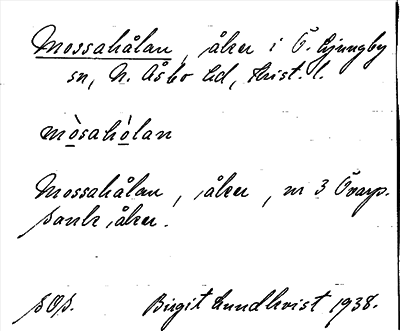 Mossahålan, åker i Ö. Ljungby
sn, N. Åsbo hd, Krist. l.
mòsahòlan
Mossahålan, åker, nr 3 Övarp.
Sank åker.
Birgit Lundkvist 1938.